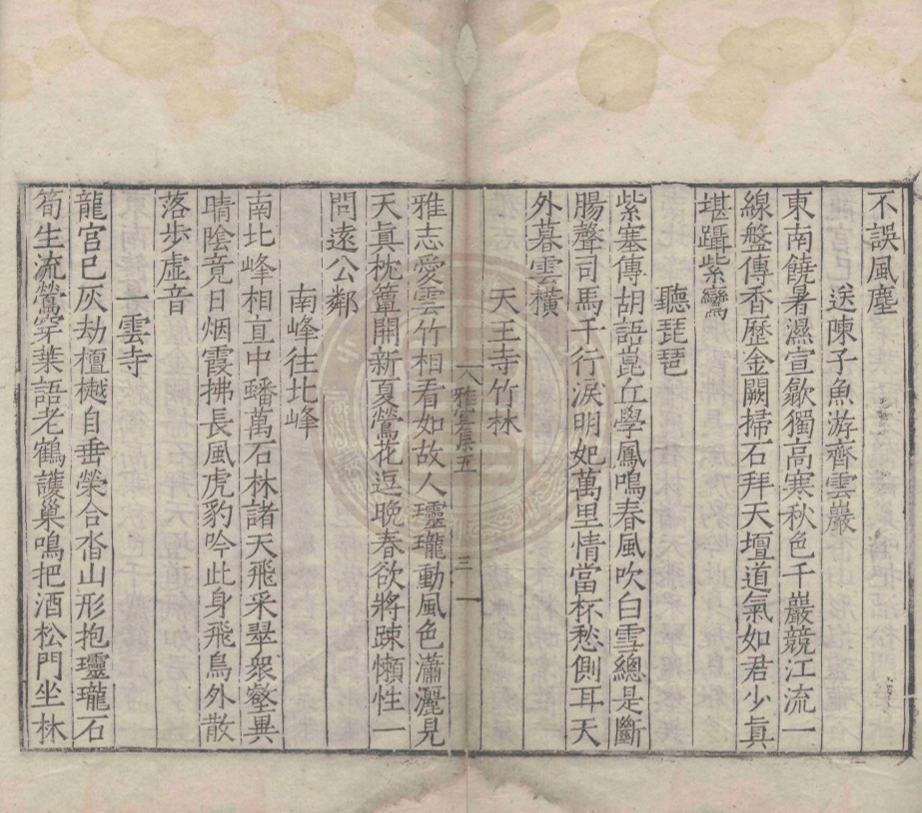 不誤風塵
送陳子魚游齊雲巖
東南饒暑濕宣歙獨高寒秋色千巖競江流一
線盤傳香歷金闕掃石拜天壇道氣如君少眞
堪躡紫鸞
聽琵琶
紫塞傳胡語崑丘學鳳鳴春風吹白雪總是斷
腸聲司馬千行淚明妃萬里情當杯愁側耳天
外暮雲橫
天王寺竹林
雅志愛雲竹相看如故人瓏動風色瀟灑見
天眞枕簟開新夏鶯花逗晚春欲將踈懶性一
問遠公鄰
南峰往北峰
南北峰相直中蟠萬石林諸天飛采翠衆壑異
晴陰竟日烟霞拂長風虎豹吟此身飛鳥外散
落步虛音
一雲寺
龍宮已灰劫檀樾自垂榮合沓山形抱瓏石
筍生流鶯穿葉語老鶴護巢鳴把酒松門坐林